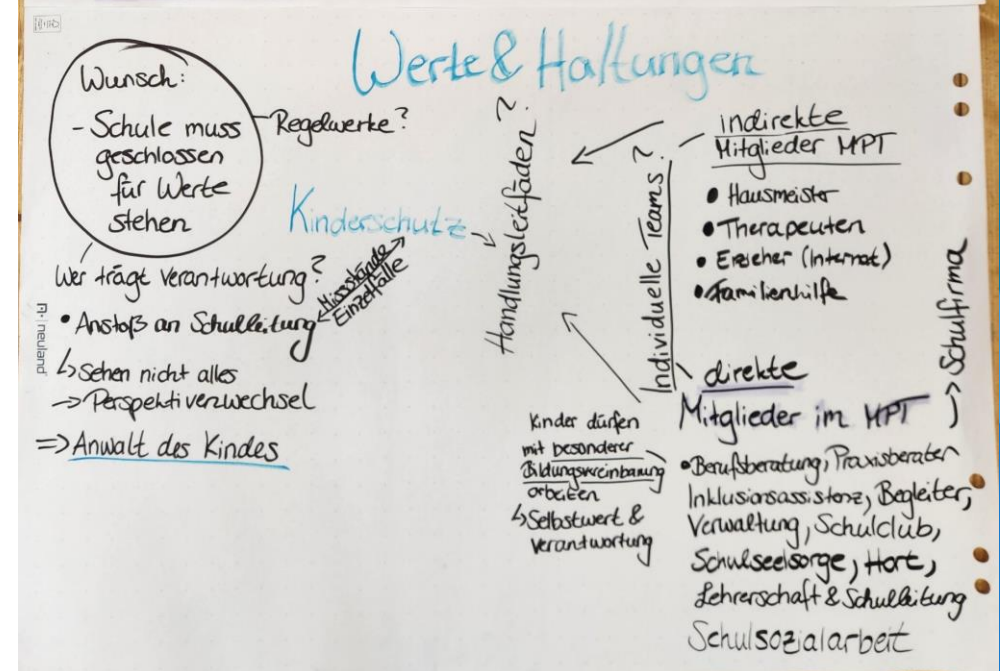 Werte & Haltungen
Wunsch:
- Schule muss
geschlossen
für Werte
stehen
Regelwerke?
Kinderschutz
Wer trägt Verantwortung?
• Anstoß an Schulleitung
↳ Sehen nicht alles
-> Perspektivenwechsel
=> Anwalt des Kindes
Missstände
Einzelfälle
Handlungsleitfäden?
Individuelle Teams?
indirekte
Mitglieder MPT
• Hausmeister
• Therapeuten
• Erzieher (Internat)
• Familienhilfe
direkte
Mitglieder im MPT
-> Schulfirma
• Berufsberatung, Praxisberater
Inklusionsassistenz, Begleiter,
Verwaltung, Schulclub,
Schulseelsorge, Hort,
Lehrerschaft & Schulleitung
Schulsozialarbeit
Kinder dürfen
mit besonderer
Bildungsvereinbarung
arbeiten
↳ Selbstwert &
Verantwortung
neuland